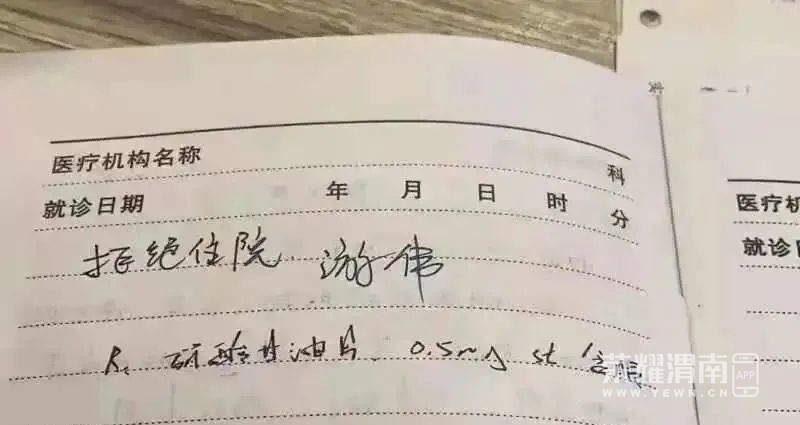 医疗机构名称 科
就诊日期 年 月 日 时 分
拒绝住院 游伟
R: 硝酸甘油片 0.5mg st 含服
医疗机
就诊日
荣耀渭南 APP
WWW.YEWN.CN